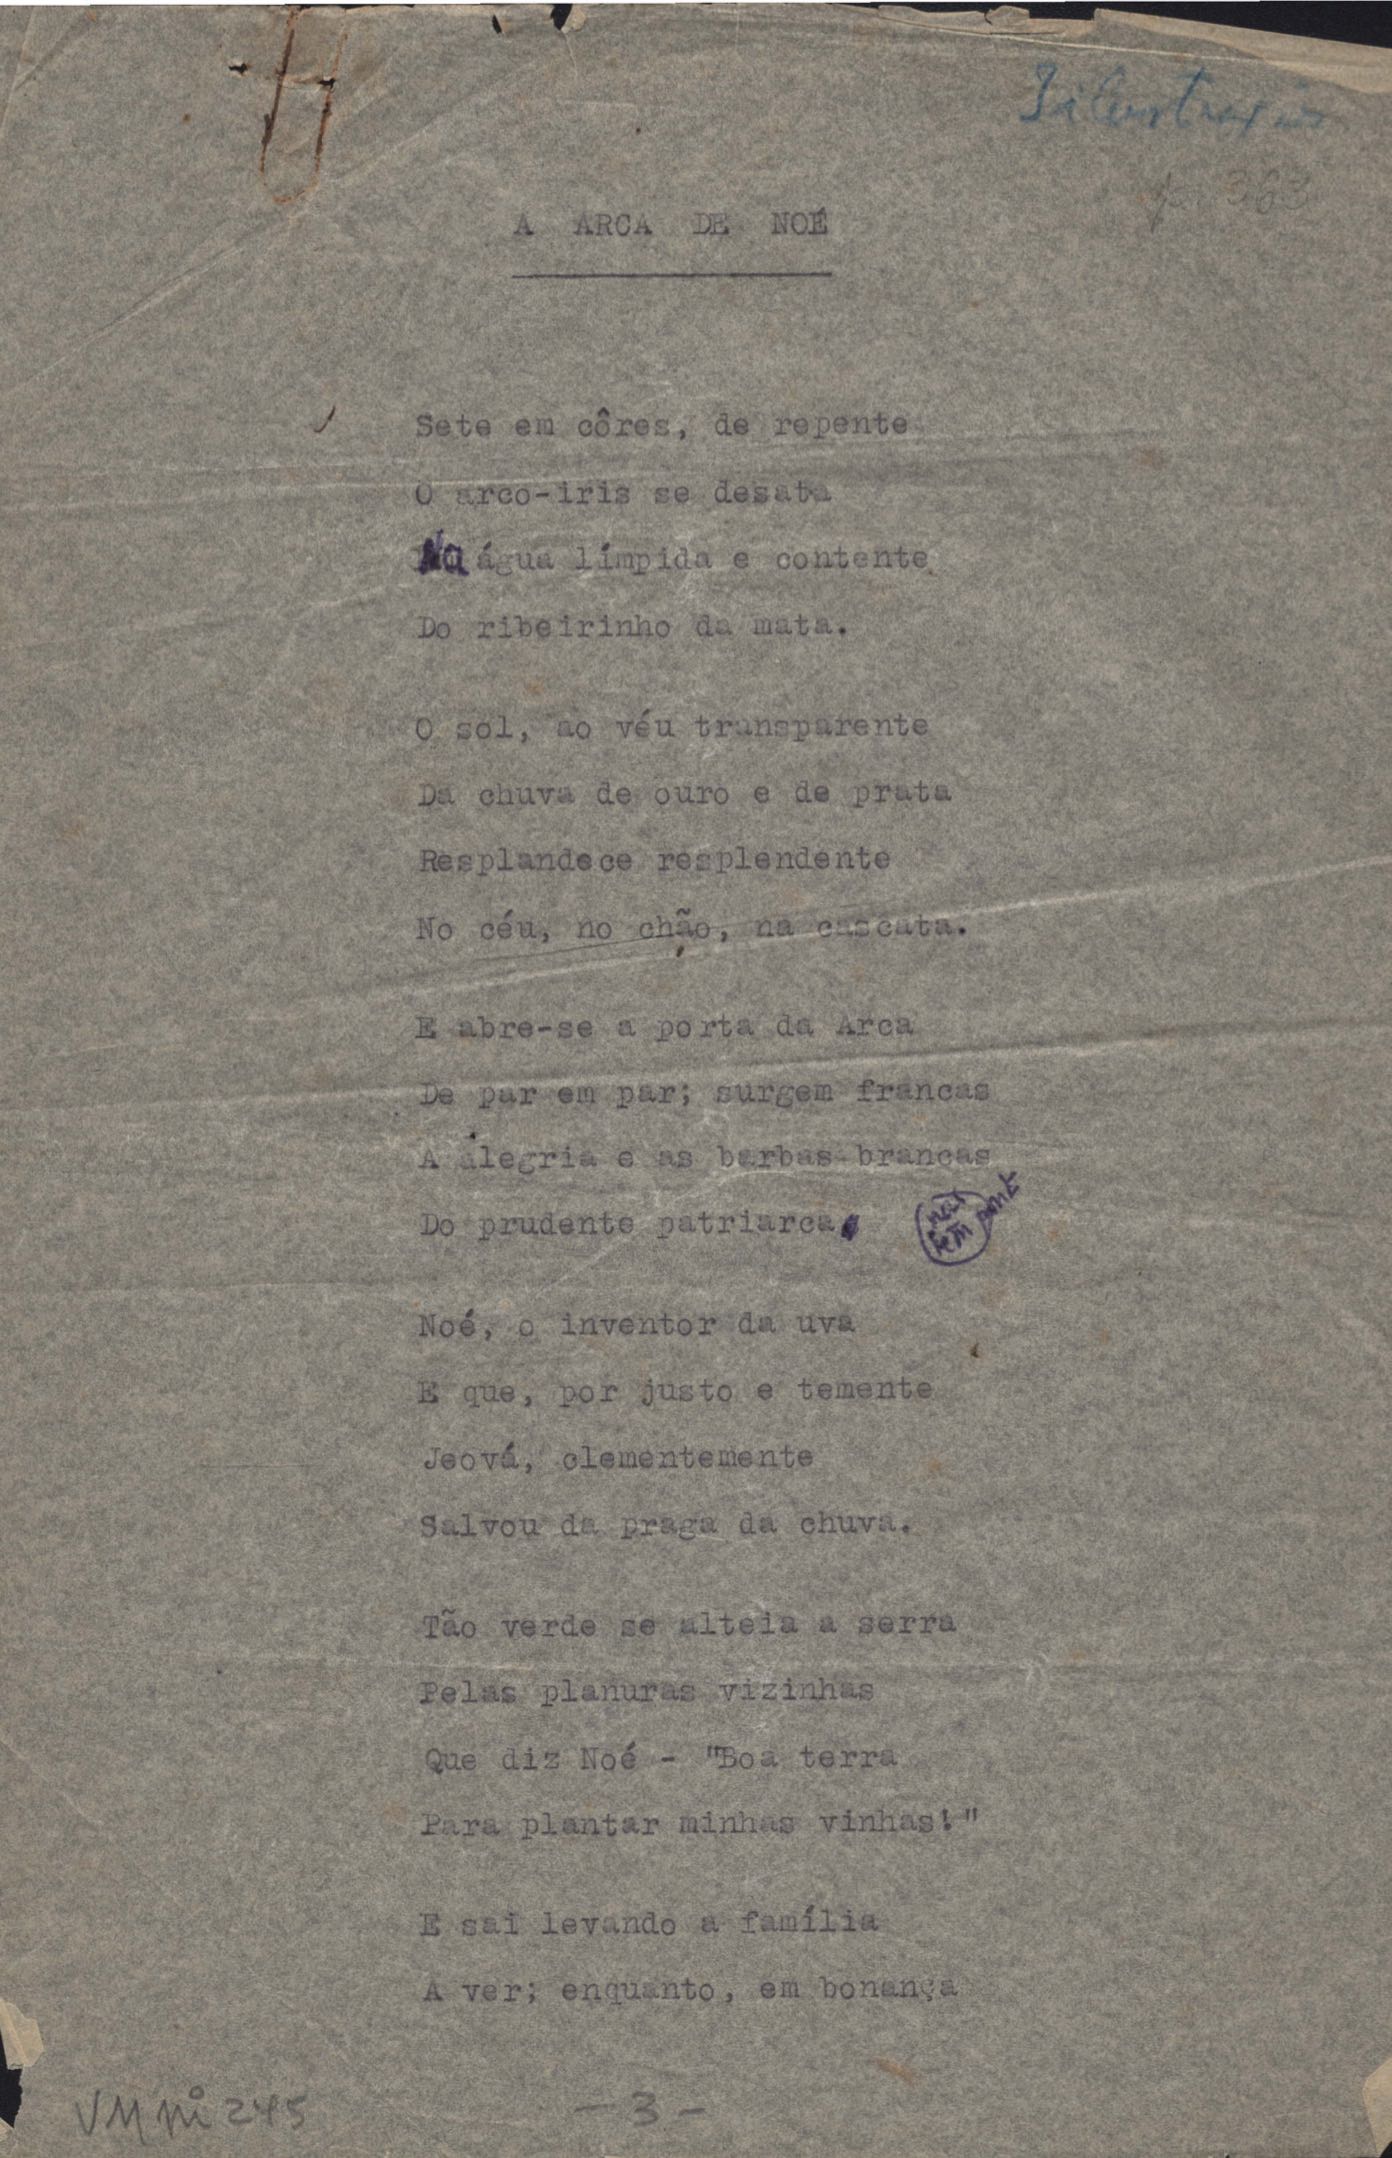 A ARCA DE NOÉ
Sete em côres, de repente
O arco-iris se desata
Na água límpida e contente
Do ribeirinho da mata.
O sol, ao véu transparente
Da chuva de ouro e de prata
Resplandece resplendente
No céu, no chão, na cascata.
E abre-se a porta da Arca
De par em par; surgem francas
A alegria e as barbas brancas
Do prudente patriarca
Noé, o inventor da uva
E que, por justo e temente
Jeová, clementemente
Salvou da praga da chuva.
Tão verde se alteia a serra
Pelas planuras vizinhas
Que diz Noé - "Boa terra
Para plantar minhas vinhas!"
E sai levando a família
A ver; enquanto, em bonança
VM pi 245
- 3 -